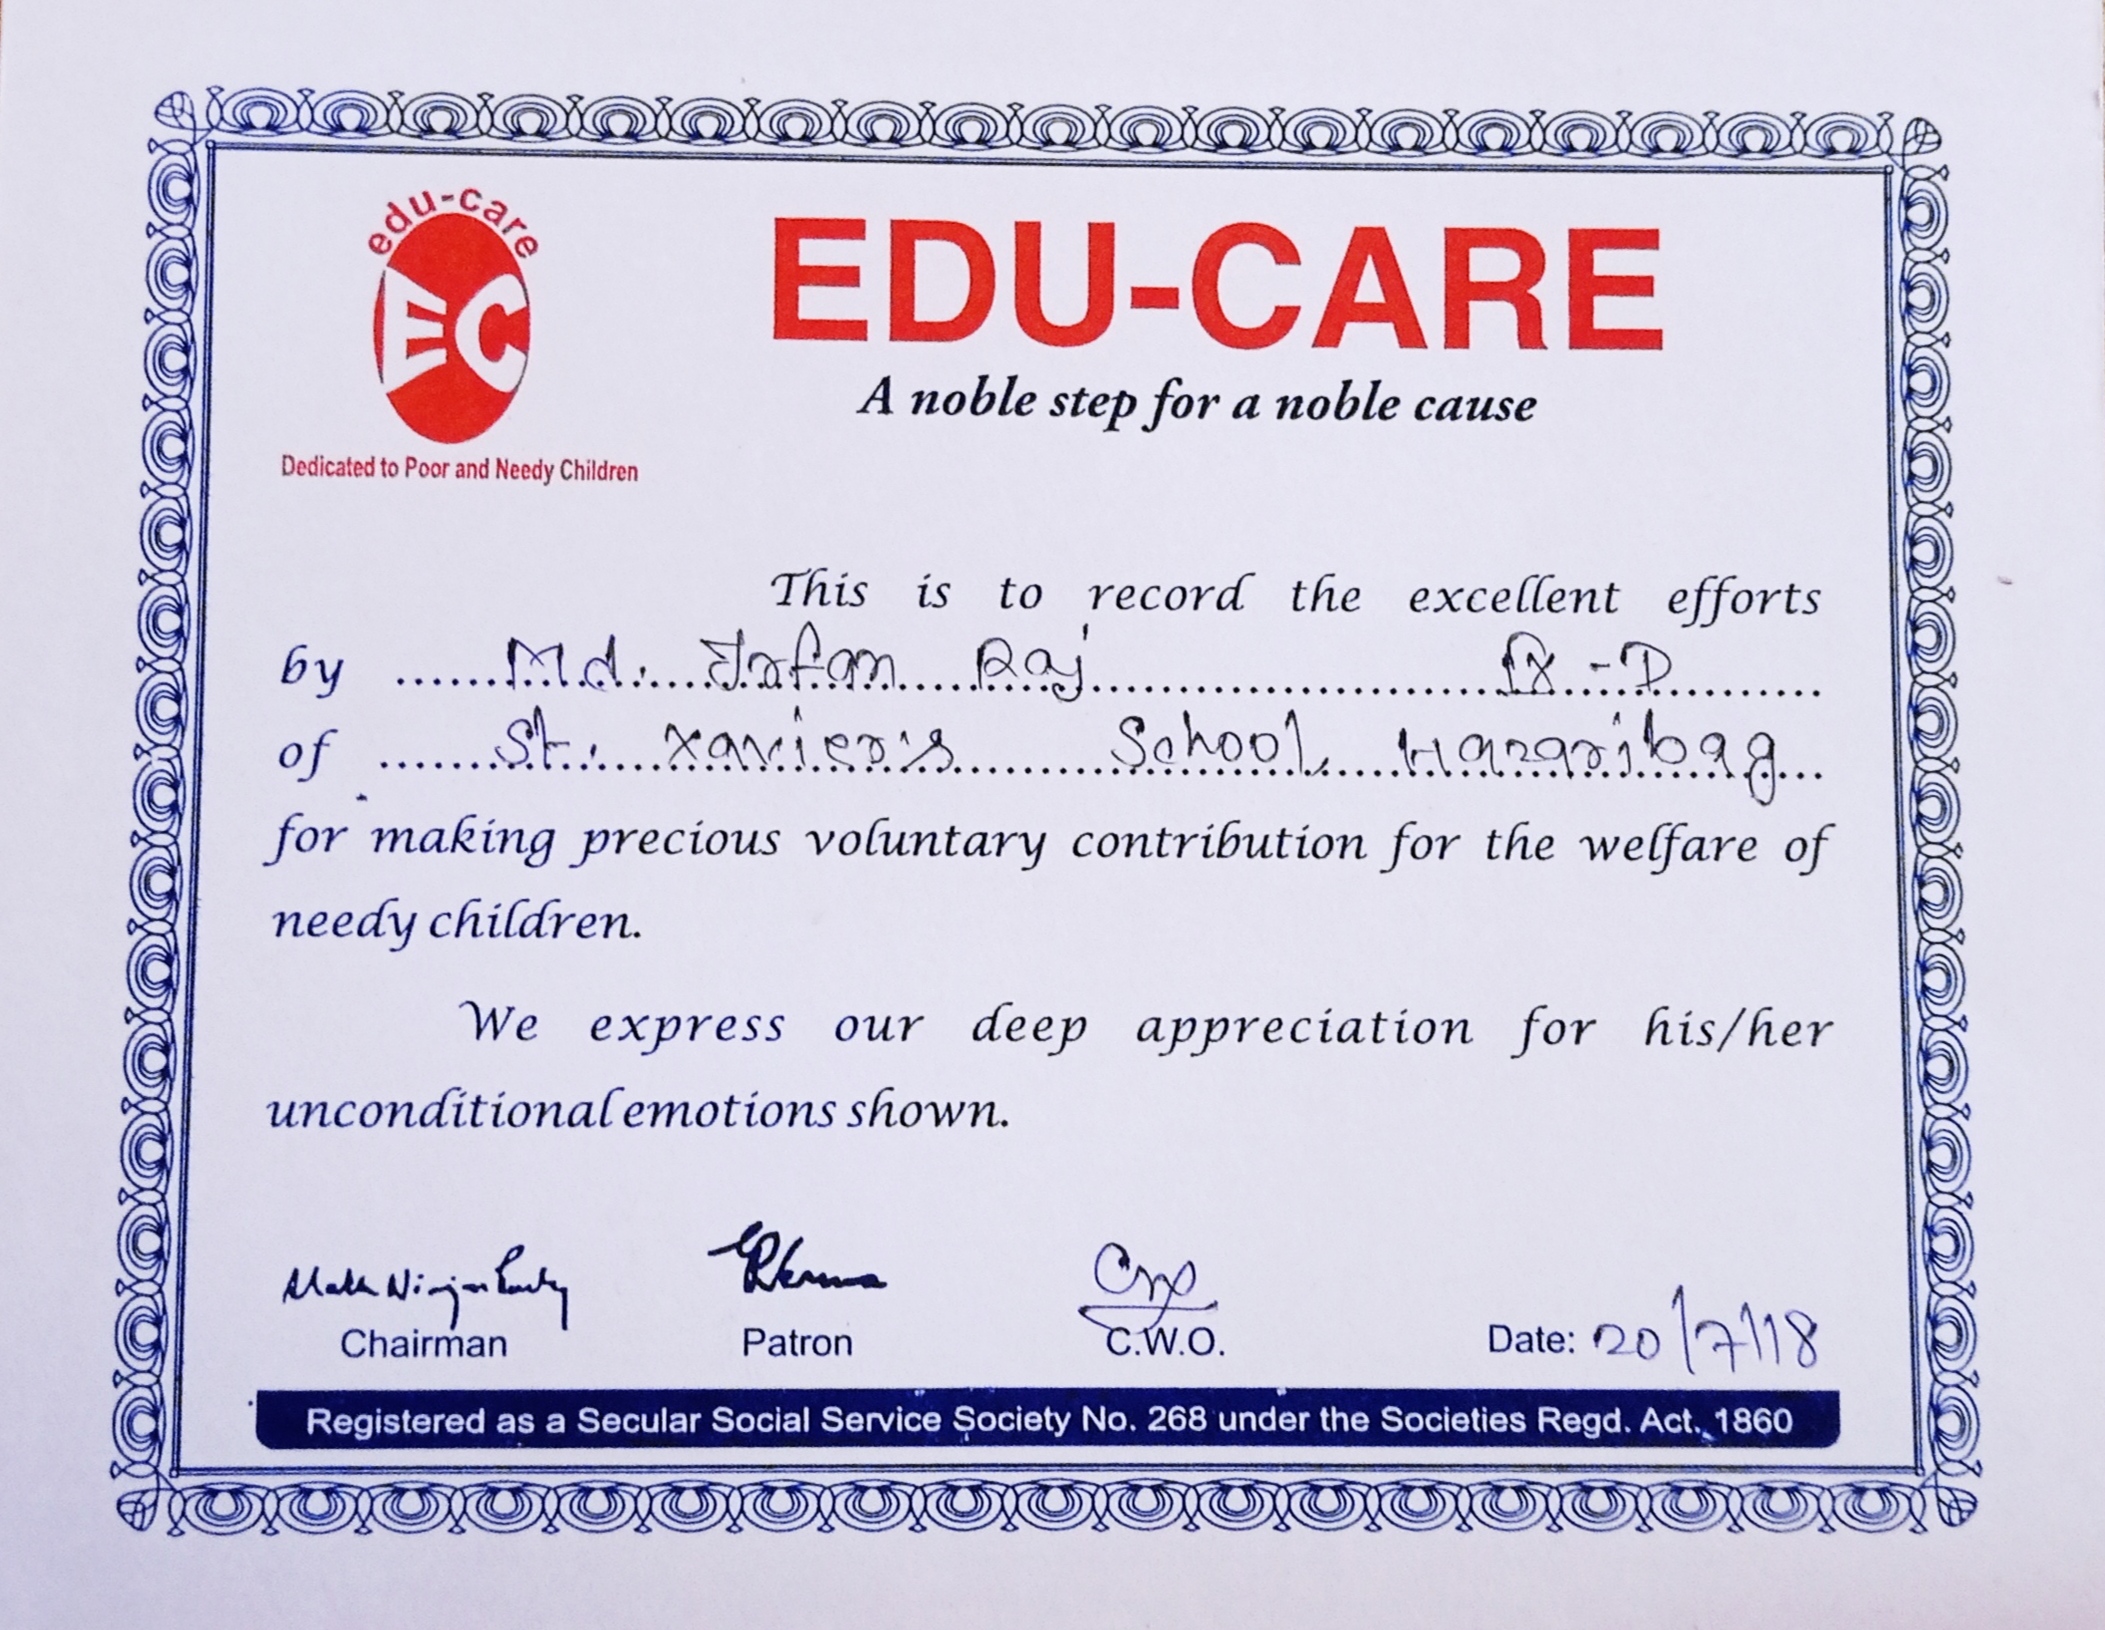 edu-care
EC
Dedicated to Poor and Needy Children
EDU-CARE
A noble step for a noble cause
This is to record the excellent efforts
by ......Md. Irfan Raj IX - D
of ......St. Xavier's School Hazaribag
for making precious voluntary contribution for the welfare of
needy children.
We express our deep appreciation for his/her
unconditional emotions shown.
Chairman Patron C.W.O. Date: 20/7/18
Registered as a Secular Social Service Society No. 268 under the Societies Regd. Act., 1860